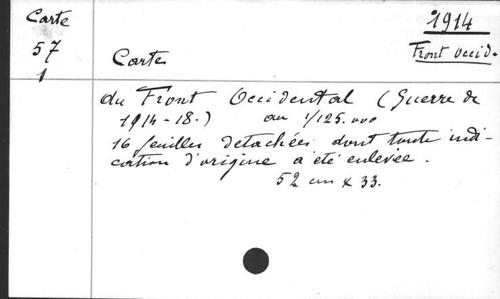 Carte
57
1
1914
Front occid.
Carte
du Front Occidental (Guerre de
1914-18.) au 1/125.000
16 feuilles detachées dont toute indi-
cation d'origine a été enlevée.
52 cm x 33.